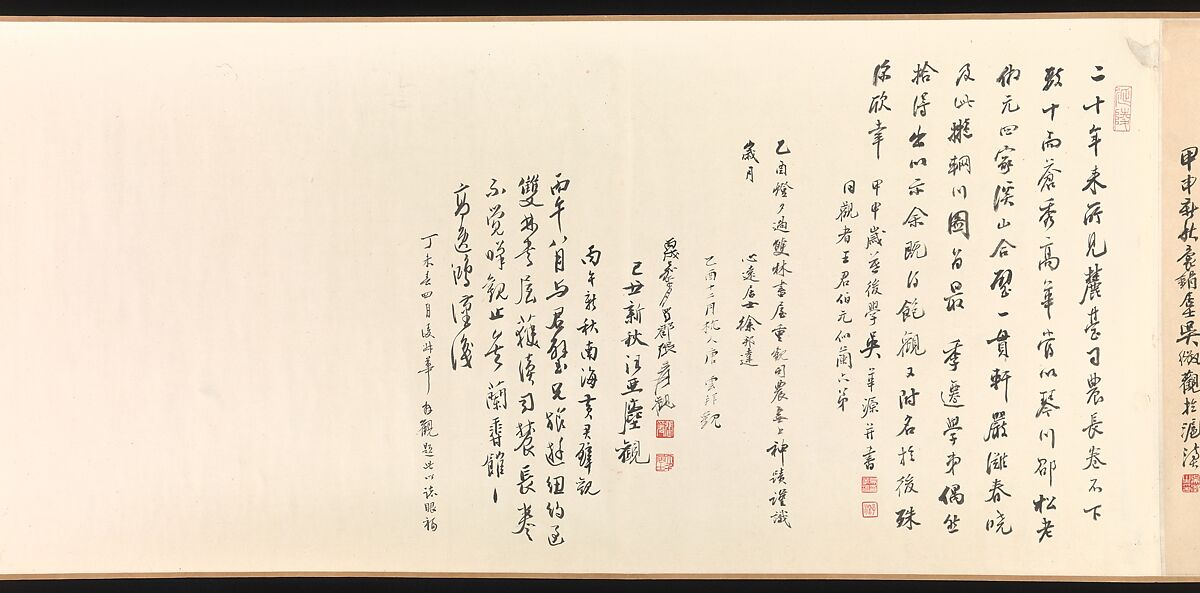 甲申新秋袁鶴
吳徵觀於滬濱
延陵
二十年來所見麓臺司農長卷不下
數十而蒼秀高華當以琴川邵松老
倣元四家溪山合璧一貫軒嚴灘春曉
及此擬輞川圖為最 季遷學弟偶然
拾得出以示余既得飽觀又附名於後殊
深欣幸 甲申歲暮後學吳華源并書
同觀者王君伯元仙蘭六弟
乙酉燈夕過雙林書屋重觀司農無上神蹟謹識
歲月 心遠居士徐邦達
乙酉十二月杭人唐雲拜觀
蜀郡張爰觀
己丑新秋汪亞塵觀
丙午新秋南海黃君璧觀
丙午八月與君璧兄旅遊紐約區
雙林書屋獲讀司農長卷
不覺嘆觀止矣 蘭雪館
高逸鴻謹識
丁未春四月後 拜觀題此以誌眼福